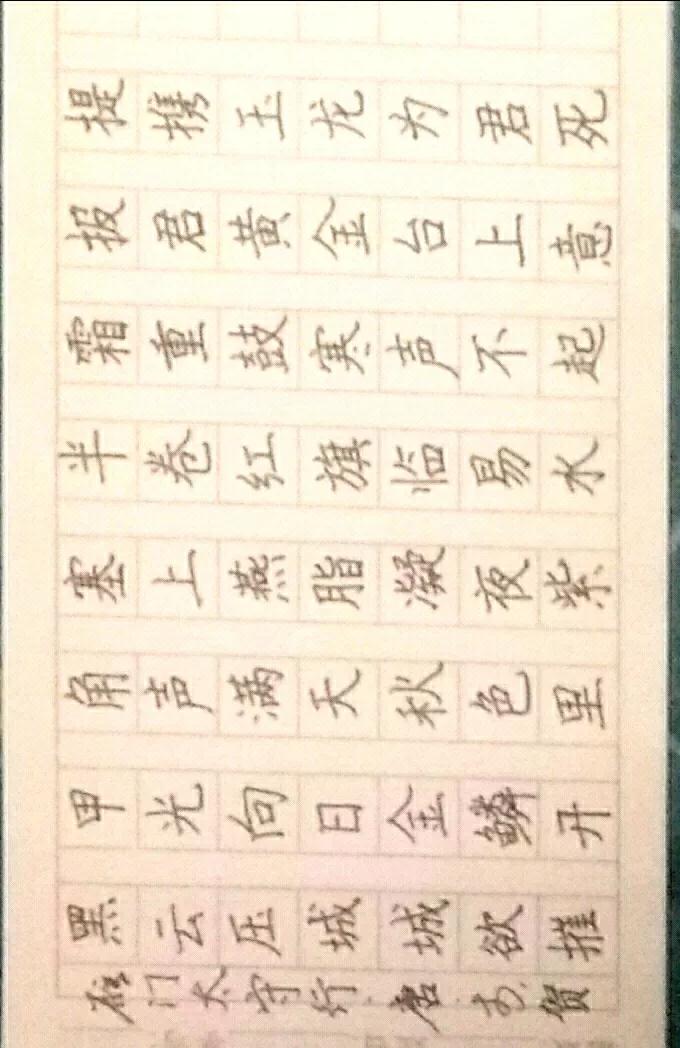 雁门太守行 唐 李贺
黑云压城城欲摧
甲光向日金鳞开
角声满天秋色里
塞上燕脂凝夜紫
半卷红旗临易水
霜重鼓寒声不起
报君黄金台上意
提携玉龙为君死